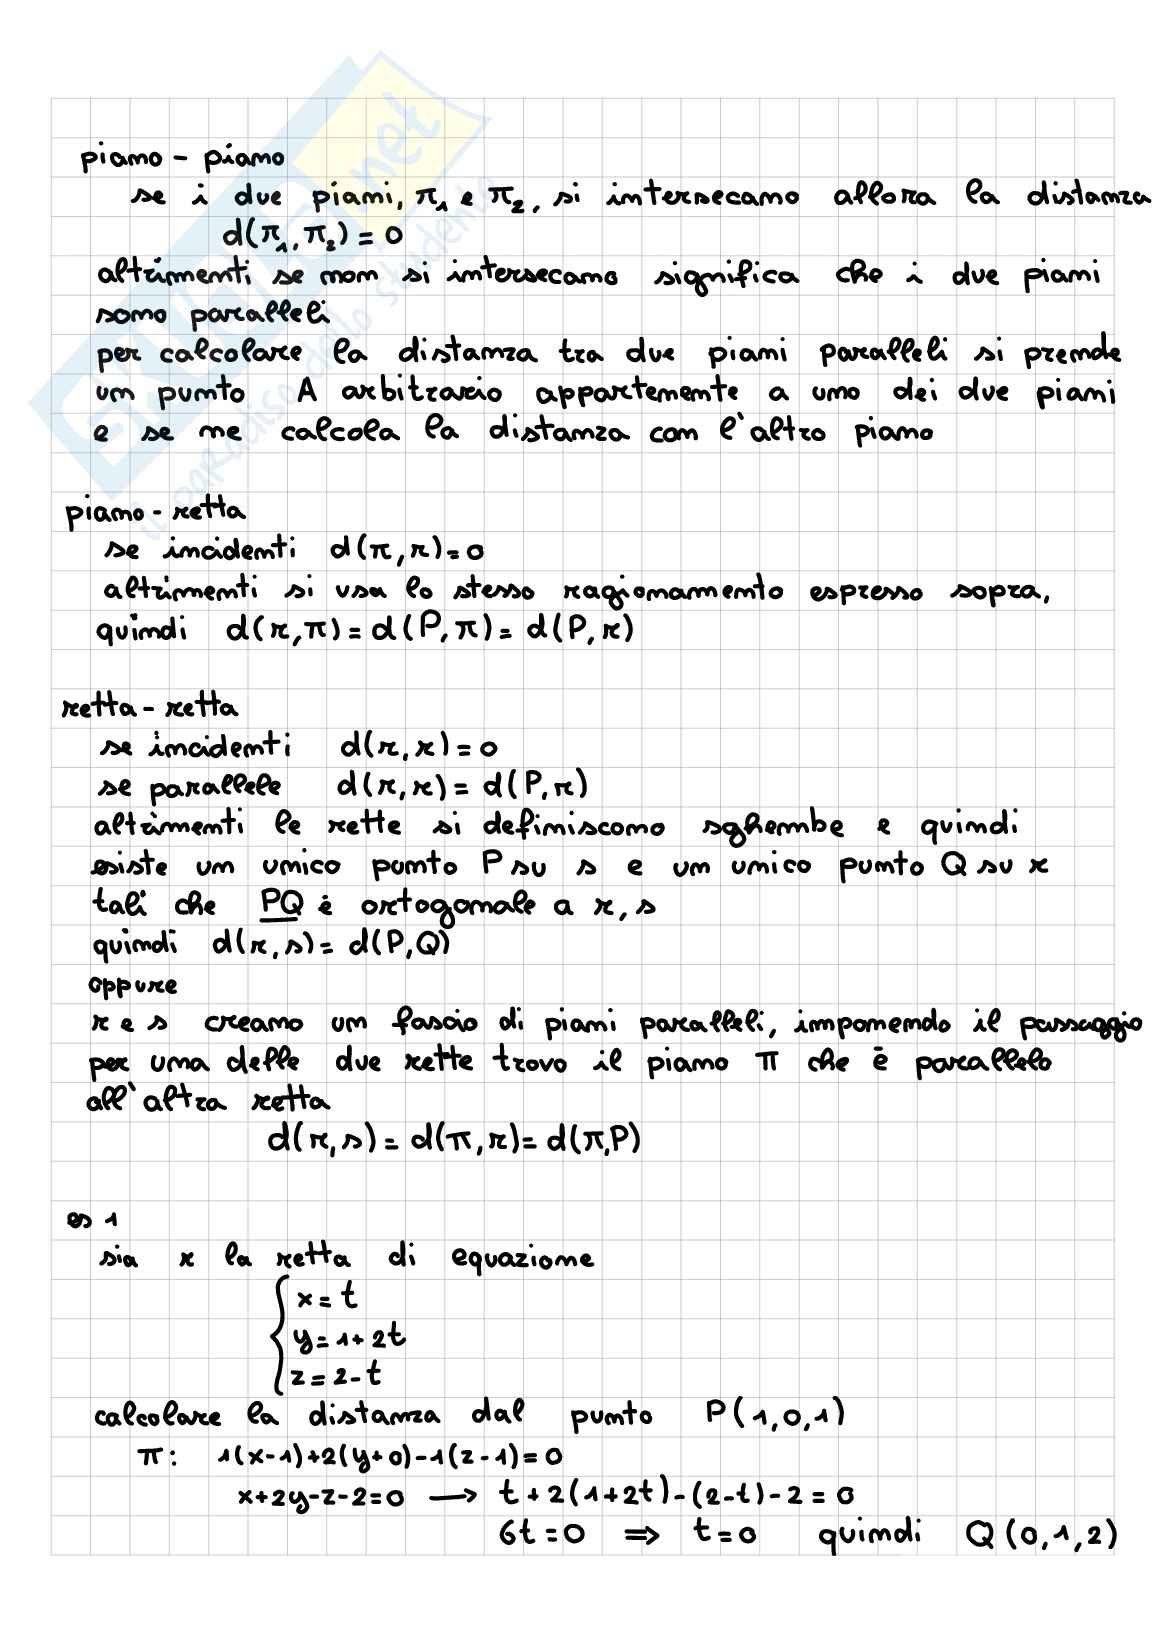 piano - piano
se i due piani, π₁ e π₂, si intersecano allora la distanza
d(π₁, π₂) = 0
altrimenti se non si intersecano significa che i due piani
sono paralleli
per calcolare la distanza tra due piani paralleli si prende
un punto A arbitrario appartenente a uno dei due piani
e se ne calcola la distanza con l'altro piano
piano - retta
se incidenti d(π, r) = 0
altrimenti si usa lo stesso ragionamento espresso sopra,
quindi d(r, π) = d(P, π) = d(P, r)
retta - retta
se incidenti d(r, r) = 0
se parallele d(r, r) = d(P, r)
altrimenti le rette si definiscono sghembe e quindi
esiste un unico punto P su s e un unico punto Q su r
tali che PQ è ortogonale a r, s
quindi d(r, s) = d(P, Q)
oppure
r e s creano un fascio di piani paralleli, imponendo il passaggio
per una delle due rette trovo il piano π che è parallelo
all'altra retta
d(r, s) = d(π, r) = d(π, P)
es 1
sia r la retta di equazione
x = t
y = 1 + 2t
z = 2 - t
calcolare la distanza dal punto P(1, 0, 1)
π: 1(x-1)+2(y+0)-1(z-1)=0
x+2y-z-2=0 → t+2(1+2t)-(2-t)-2=0
6t=0 ⇒ t=0 quindi Q(0,1,2)
SKUOLA.net
il paradiso dello studente